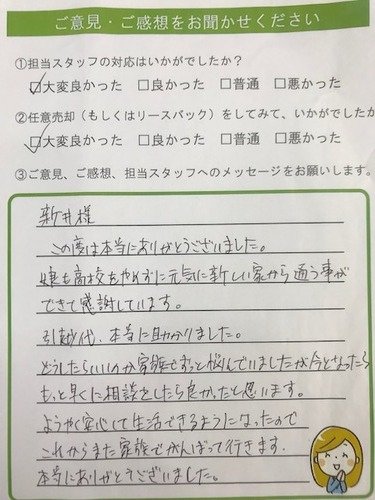 ご意見・ご感想をお聞かせください
①担当スタッフの対応はいかがでしたか？
☑大変良かった □良かった □普通 □悪かった
②任意売却（もしくはリースバック）をしてみて、いかがでしたか
☑大変良かった □良かった □普通 □悪かった
③ご意見、ご感想、担当スタッフへのメッセージをお願いします。
新井様
この度は本当にありがとうございました。
娘も高校もやめずに元気に新しい家から通う事が
できて感謝しています。
引越代、本当に助かりました。
どうしたらいいのか家族でずっと悩んでいましたが今となったら
もっと早くに相談をしたら良かったと思います。
ようやく安心して生活できるようになったので
これからまた家族でがんばって行きます。
本当にありがとうございました。